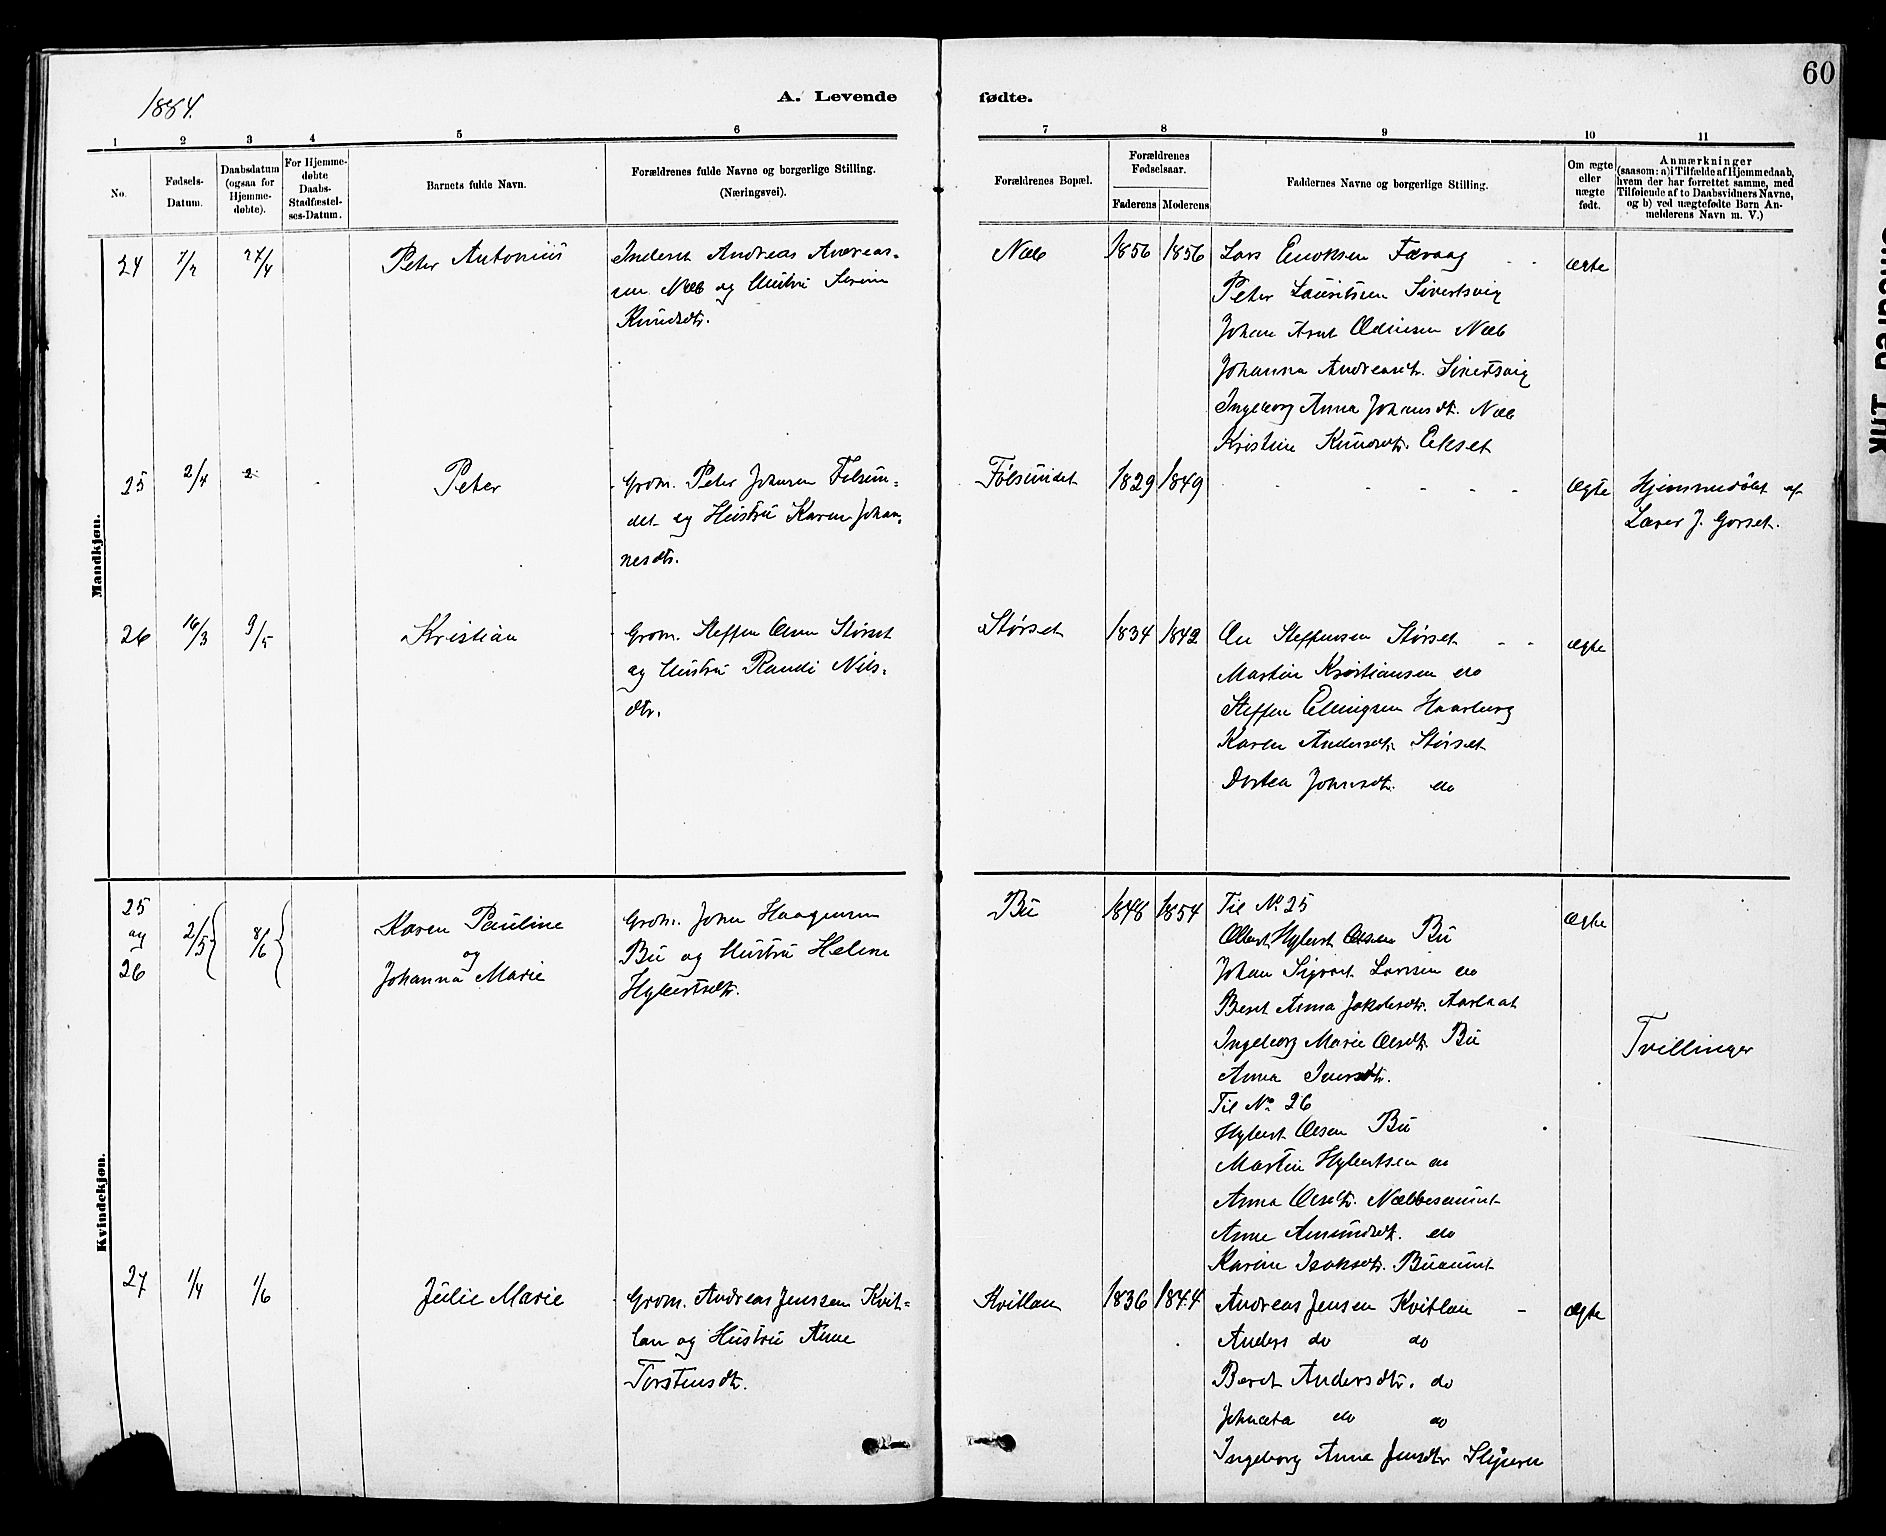 60
1884.
A. Levende fødte.
1 2 3 4 5 6 7 8 9 10 11
No.
Fødsels-
Datum.
Daabsdatum
(ogsaa for
Hjemme-
døbte).
For Hjemme-
døbte
Daabs-
Stadfæstel-
ses-Datum.
Barnets fulde Navn.
Forældrenes fulde Navne og borgerlige Stilling.
(Næringsvei).
Forældrenes Bopæl.
Forældrenes
Fødselsaar.
Faderens Moderens
Faddernes Navne og borgerlige Stilling.
Om ægte
eller
uægte
født.
Anmærkninger
(saasom: a) i Tilfælde af Hjemmedaab,
hvem der har forrettet samme, med
Tilføiende af to Daabsvidners Navne,
og b) ved uægtefødte Børn An-
melderens Navn m. V.)
Mandkjøn.
24 27/4
Peter Antonius
Inderst Andreas Andreas-
sen Næb og Hustru
Knudsdtr.
Næb
1856 1856
Lars Enoksen
Peter Lauritsen Sivertsvig
Johan Arnt Odinsen Næb
Johanna Andreasdt. Sivertsvig
Ingeborg Anna Johansdt. Næb
Kristine Knudsdtr. Eekset
ægte
25 2/4 2
Peter
Grdm. Peter Johnsen Følsun-
det og Hustru Karen Johan-
nesdtr.
Følsundet
1829 1849
ægte
Hjemmedøbt af
Lærer J. Gorset.
26 16/3 9/5
Kristian
Grdm. Steffen Olsen Størset
og Hustru Randi Nils-
dtr.
Størset
1834 1842
Ole Steffensen Størset
Martin Kristiansen do
Steffen Ellingsen Haarberg
Karen Andersdtr. Størset
Dortea Johnsdtr. do
ægte
Kvindekjøn.
25
og
26
2/5 8/6
Karen Pauline
og
Johanna Marie
Grdm. John Haagensen
Bu og Hustru Helene
Hybertsdtr.
Bu
1848 1854
Til No 25
Albert Hybert Olsen Bu
Johan Sigvart Larsen do
Beret Anna Jakobsdtr.
Ingeborg Marie Olsdtr. Bu
Anna Iversdtr.
Til No 26
Hybert Olsen Bu
Martin Hybertsen do
Anna Olsdtr. Næbbesaunet
Anne Amundsdt. do
Karine Isaksdtr. Busaunet
ægte
Tvillinger
27 1/4 1/6
Julie Marie
Grdm. Andreas Jenssen Kvit-
lan og Hustru Anne
Torstensdtr.
Kvitlan
1836 1844
Andreas Jensen Kvitlan
Anders do do
Beret Andersdtr. do
do do
Ingeborg Anna Jensdtr
ægte